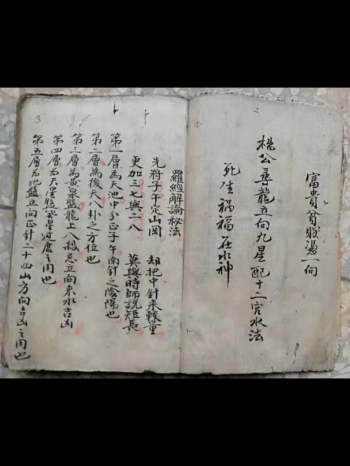 富貴貧賤憑一向
楊公龍立向九星配十二宮水法
死生禍福在水神
羅經解論秘法
先將子午定山岡 却把中針來較量
更加三七與二八 莫與時師說短長
第一層為天池中分正子午南針之陰陽也
第二層為後天八卦之方位也
第三層為黃泉盤龍上八殺忌立向來水吉凶
第四層為天星之用也
第五層為地盤立向正針二十四山方向吉凶之用也